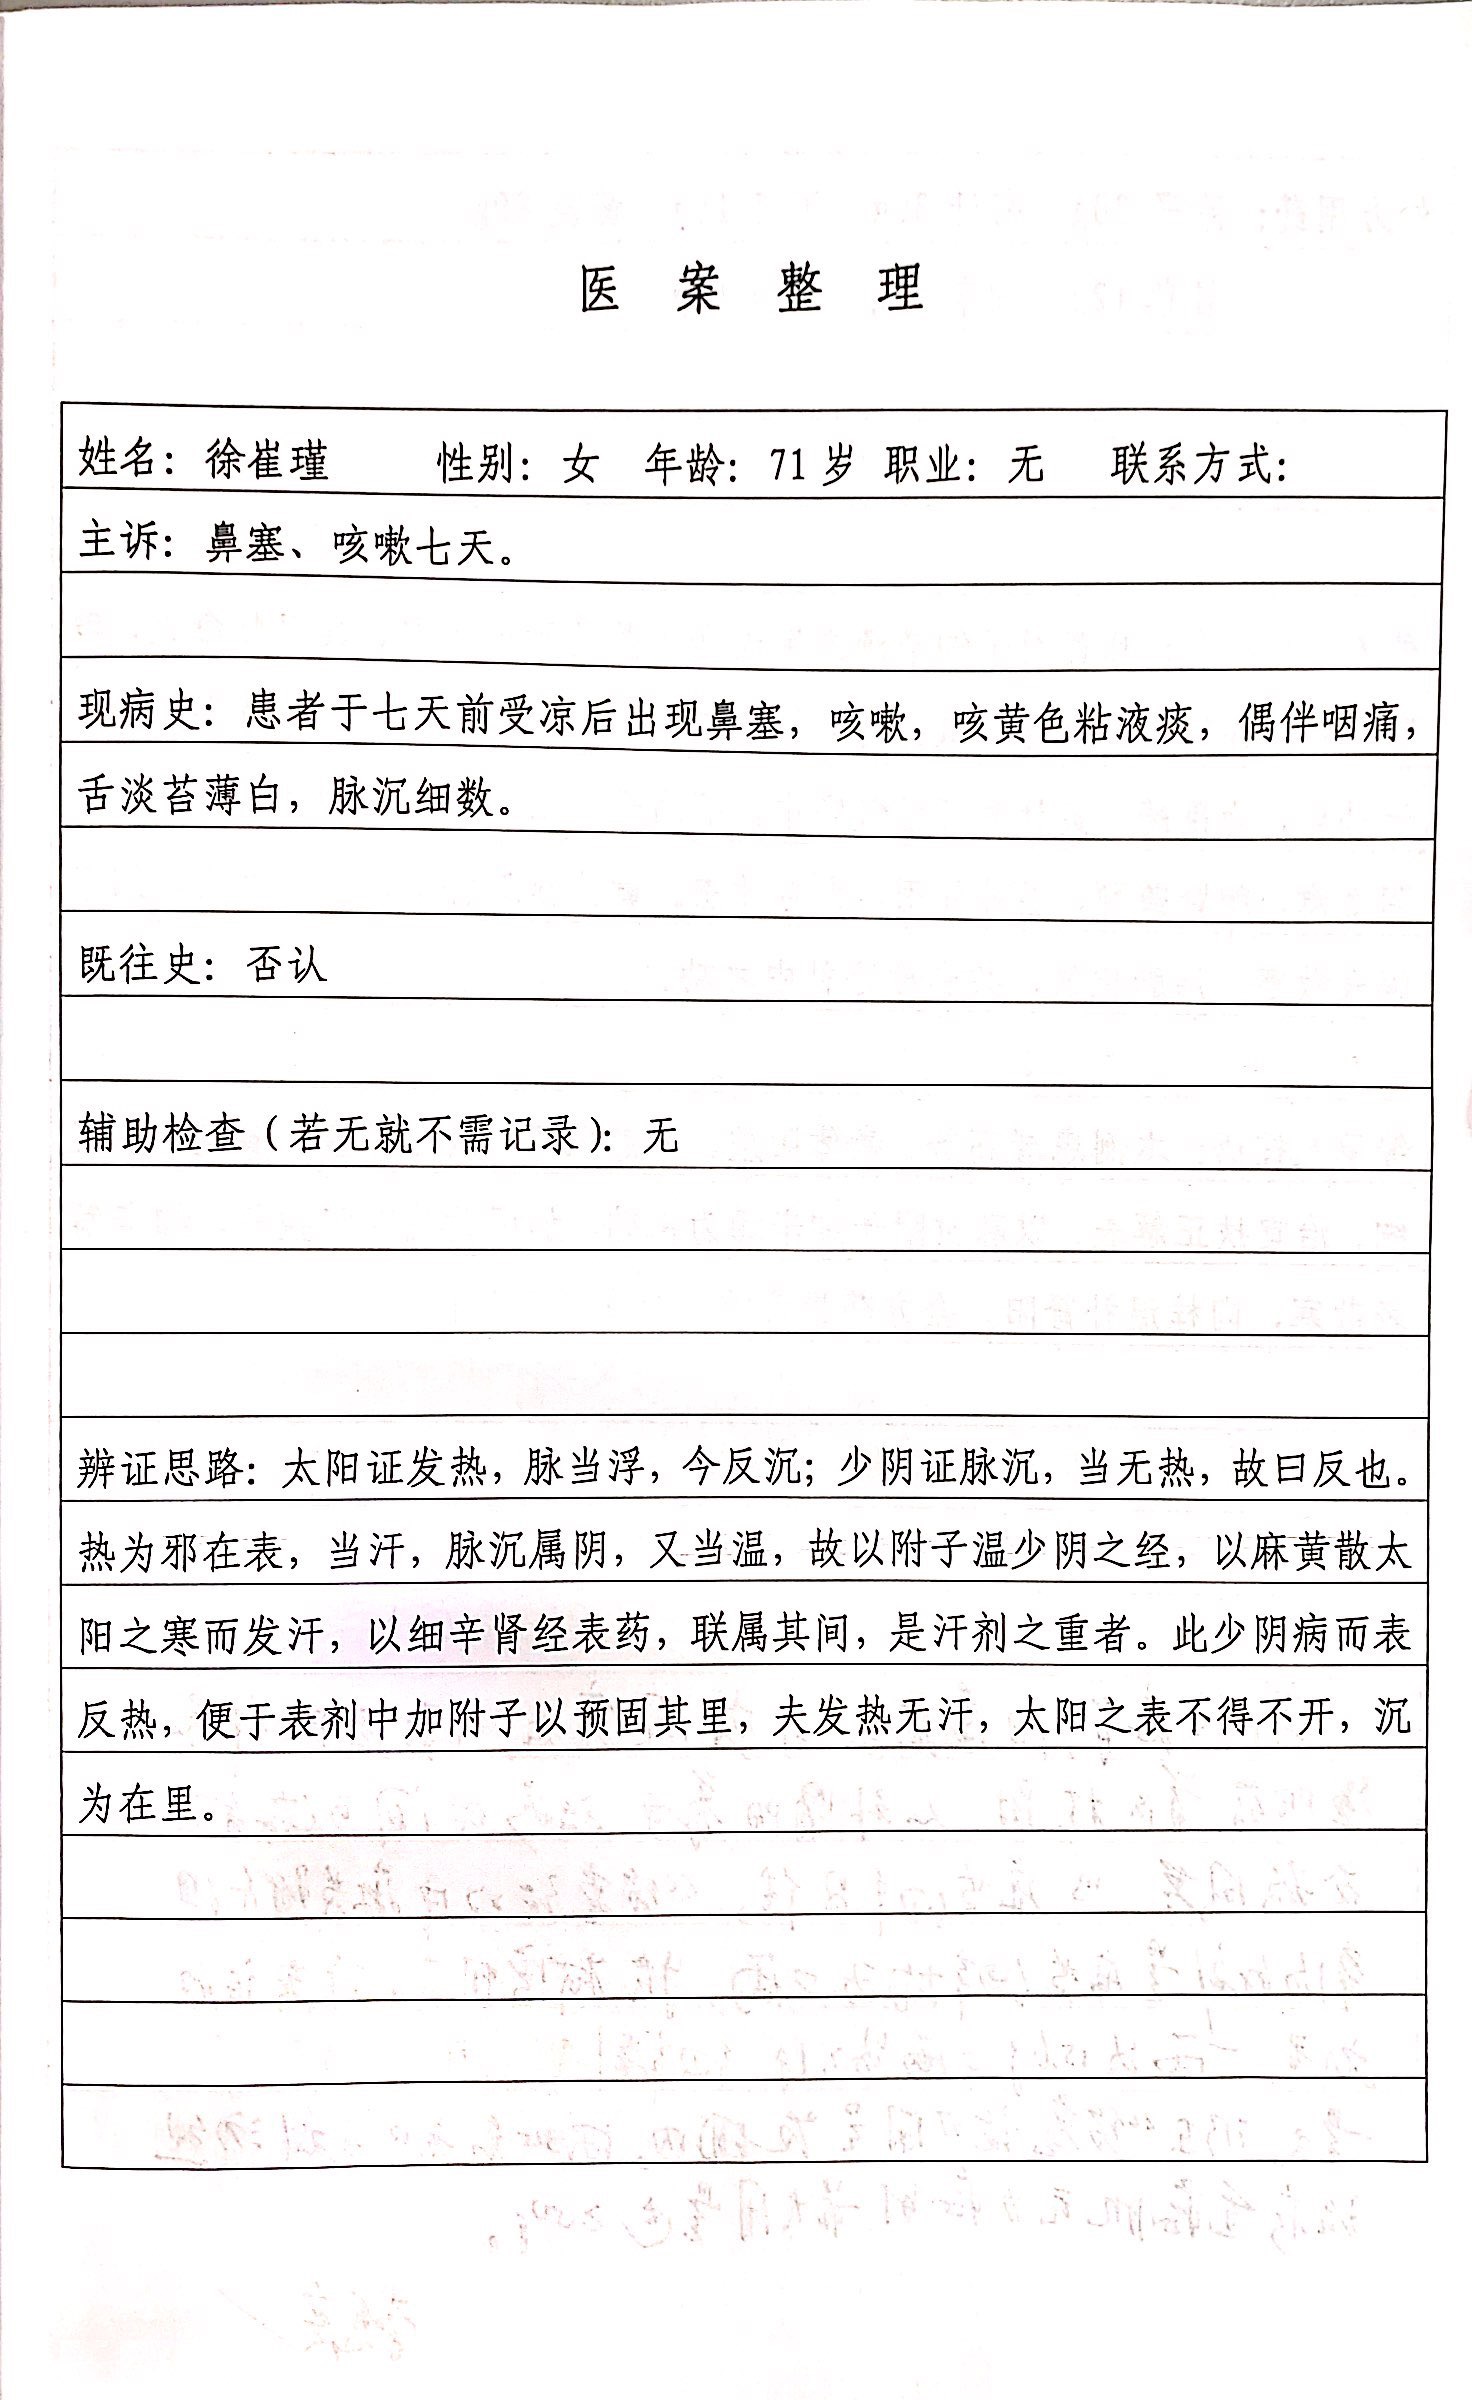 医案整理
姓名：徐崔瑾 性别：女 年龄：71岁 职业：无 联系方式：
主诉：鼻塞、咳嗽七天。
现病史：患者于七天前受凉后出现鼻塞，咳嗽，咳黄色粘液痰，偶伴咽痛，
舌淡苔薄白，脉沉细数。
既往史：否认
辅助检查（若无就不需记录）：无
辨证思路：太阳证发热，脉当浮，今反沉；少阴证脉沉，当无热，故曰反也。
热为邪在表，当汗，脉沉属阴，又当温，故以附子温少阴之经，以麻黄散太
阳之寒而发汗，以细辛肾经表药，联属其间，是汗剂之重者。此少阴病而表
反热，便于表剂中加附子以预固其里，夫发热无汗，太阳之表不得不开，沉
为在里。